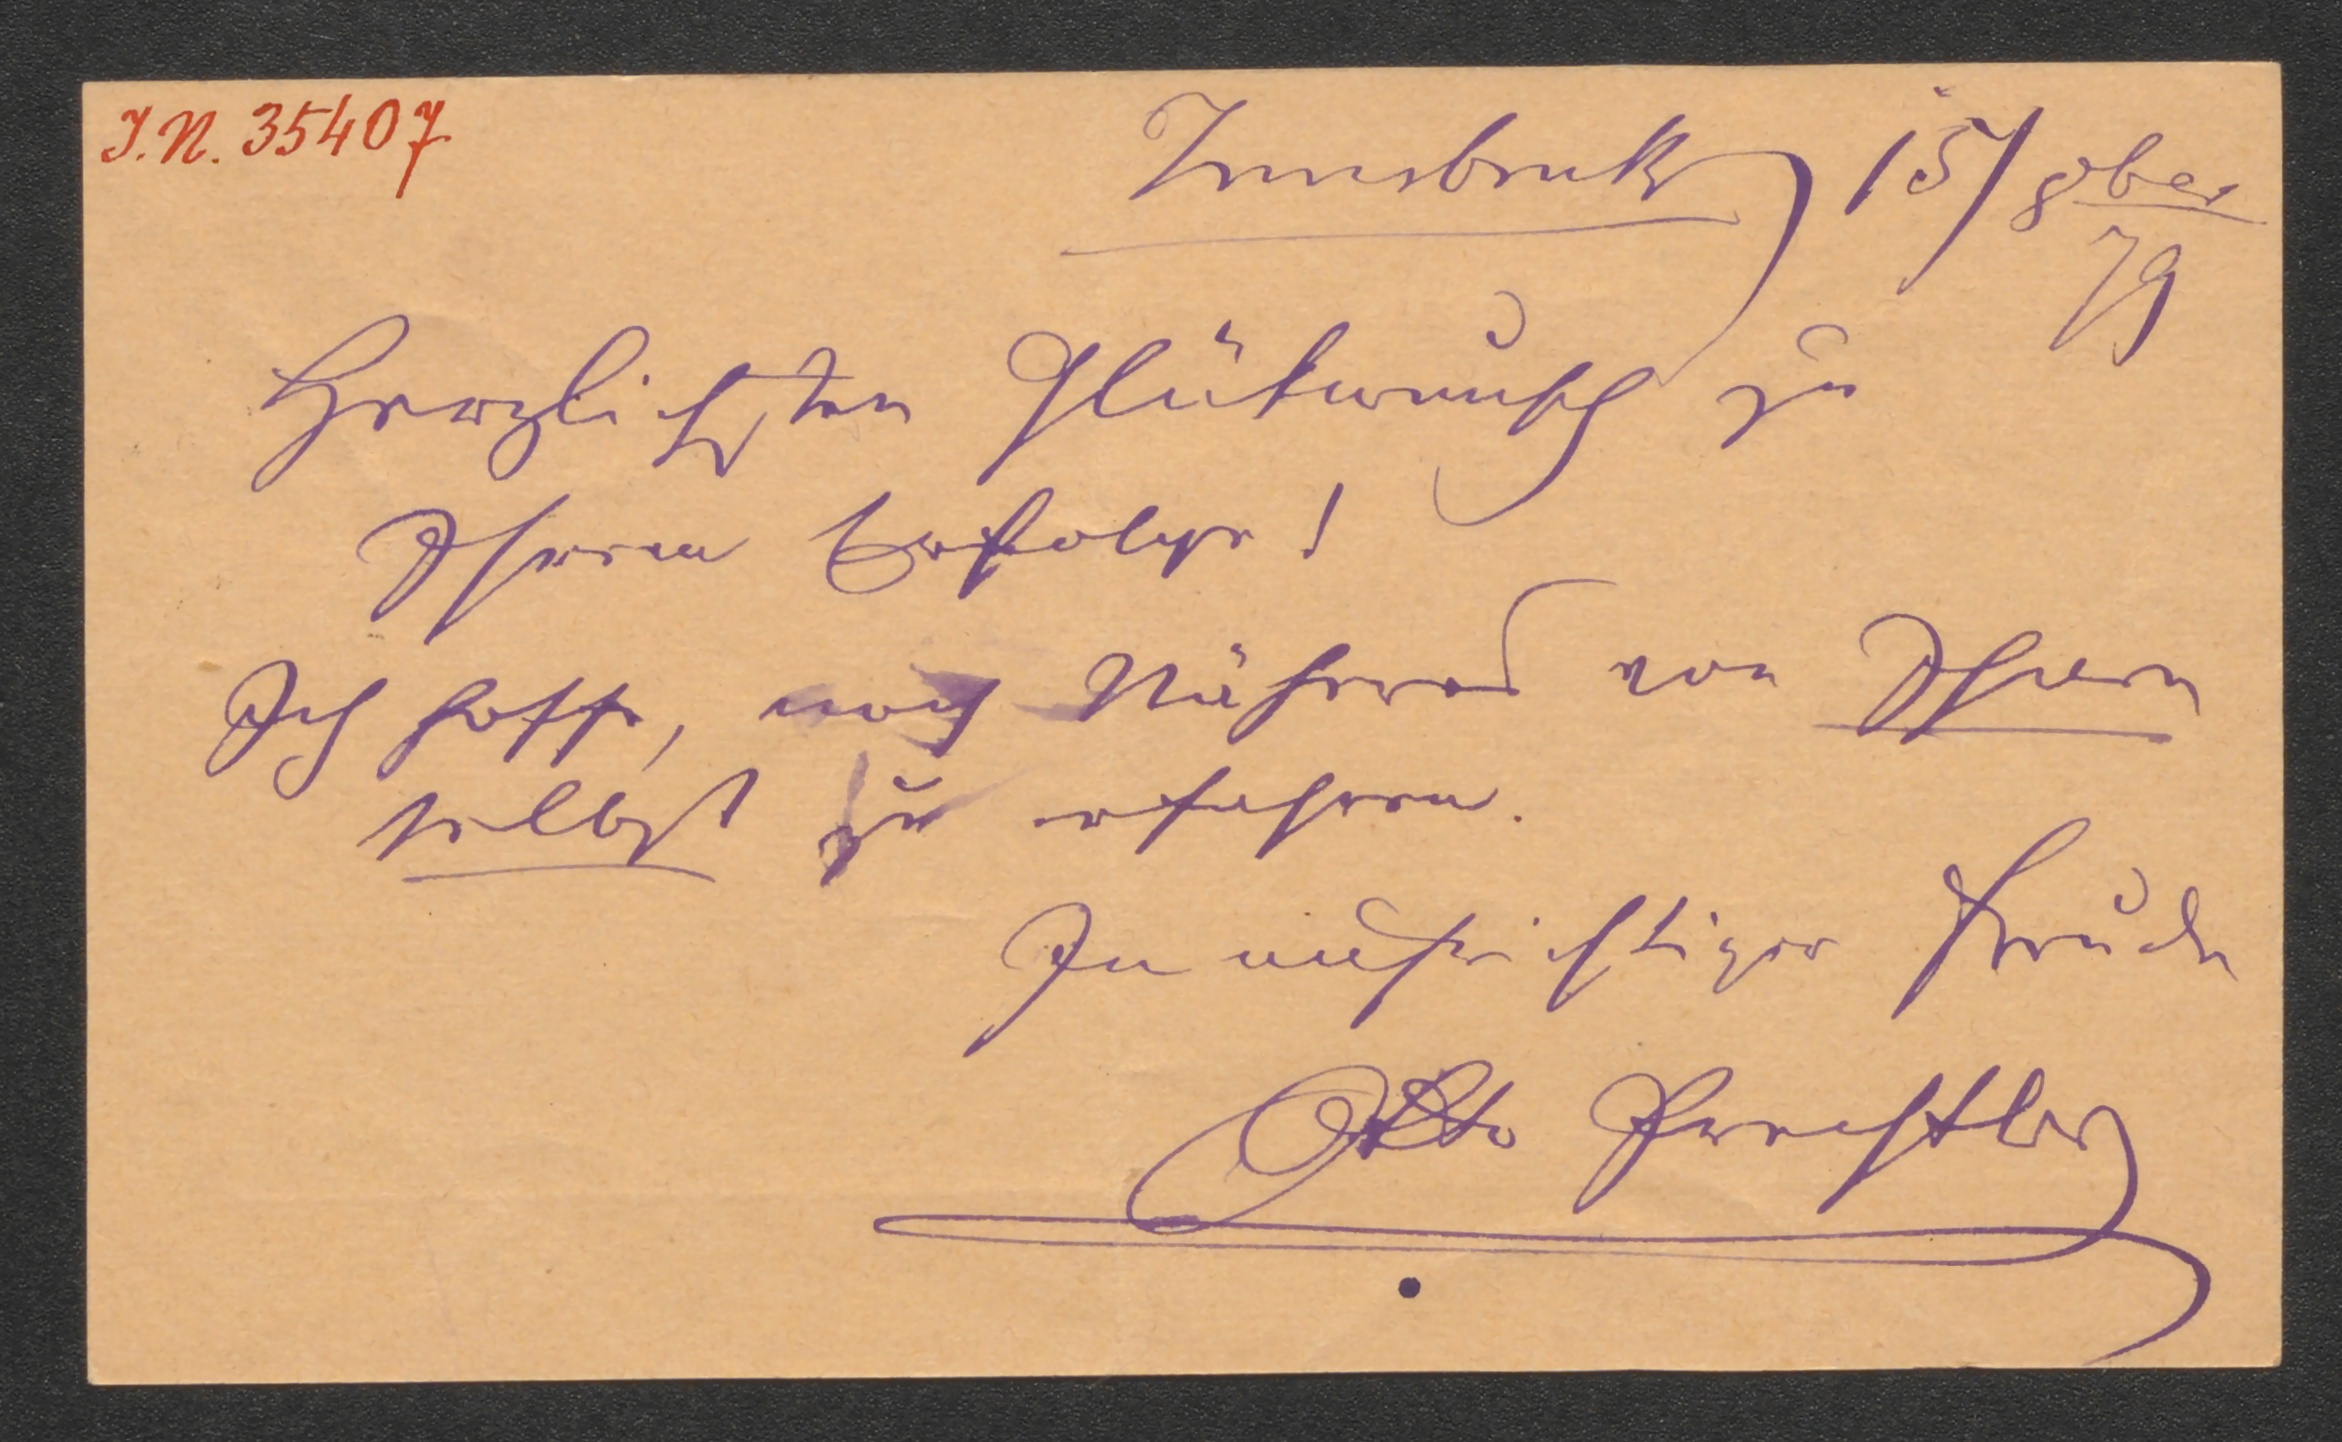 J.N. 35407
Innsbruk 15/8ber
79
Herzlichsten Glükwunsch zu
Ihrem Erfolge!
Ich hoffe, noch Näheres von Ihnen
selbst zu erfahren.
In aufrichtiger Freude
Otto Prechtler